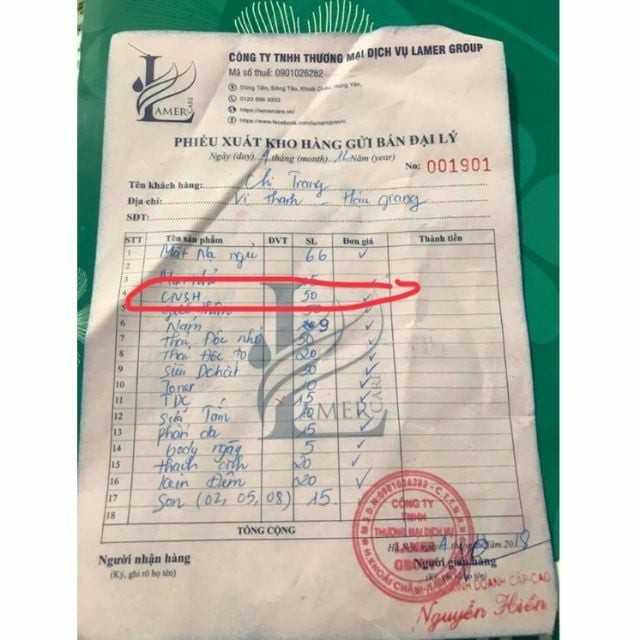 CÔNG TY TNHH THƯƠNG MẠI DỊCH VỤ LAMER GROUP
Mã số thuế: 0901026282
Dũng Tiến, Đồng Tảo, Khoái Châu, Hưng Yên.
https://lamercare.vn/
LAMER CARE
PHIẾU XUẤT KHO HÀNG GỬI BÁN ĐẠI LÝ
Ngày (day) tháng (month) Năm (year)
No: 001901
Tên khách hàng: Chị Trang
Địa chỉ: Vị Thanh - Hậu Giang
SĐT:
STT Tên sản phẩm ĐVT SL Đơn giá Thành tiền
1 Mặt Nạ ngủ 66
2
3
4 CNSH 50
5
6 Nám 9
7 Thải Độc nhỏ 50
8 Thải Độc to 20
9 Sữa Dchất 50
10 Toner 10
11 TDC 15
12 Sữa Tắm
13 phấn đá 15
14 body ngày 5
15 20
16 kem Đêm 20
17 Son (02, 05, 08) 15
18
TỔNG CỘNG
LAMER CARE
Năm 2018
Người nhận hàng
(Ký, ghi rõ họ tên)
Người giao hàng
(Ký, ghi rõ họ tên)
CÔNG TY
TNHH
THƯƠNG MẠI DỊCH VỤ
GROUP
KINH DOANH CẤP CAO
Nguyễn Hiền